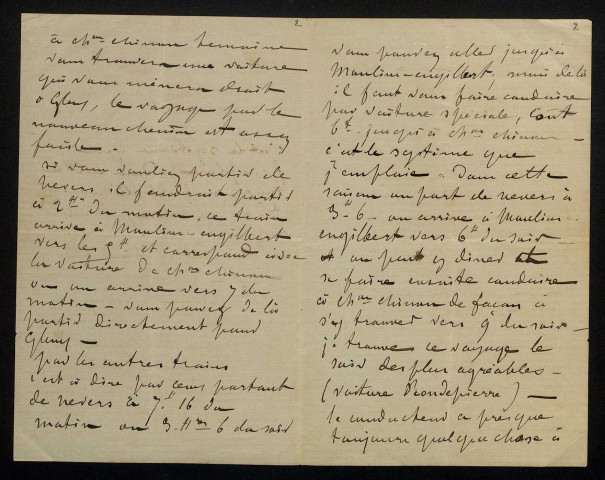 2
à ch^au chinon semaine
vous trouverez une voiture
qui vous mènera droit
à Glux, le voyage par le
nouveau chemin est assez
facile.
si vous vouliez partir de
nevers il faudrait partir
à 2^h du matin, ce train
arrive à Moulins-engilbert
vers les et correspond avec
la voiture de ch^au chinon
ou on arrive vers 7 du
matin – vous pouvez de là
partir directement pour
Glux –
par les autres trains
c'est à dire par ceux partant
de nevers à 7^h 16 du
matin ou 3 6 du soir
2
vous pouvez aller jusqu'à
Moulins-engilbert, mais de là
il faut vous faire conduire
par voiture speciale, cout
6^f jusqu'à ch^au chinon –
c'est le système que
j'emploie – Dans cette
saison on part de nevers à
3^h6 – on arrive à Moulins
engilbert vers 6^h du soir –
on peut y diner et
se faire ensuite conduire
à ch^au chinon de façon à
s'y trouver vers 9^h du soir –
je trouve ce voyage le
soir des plus agréables –
(voiture Dondepierre) –
le conducteur a presque
toujours quelque chose à